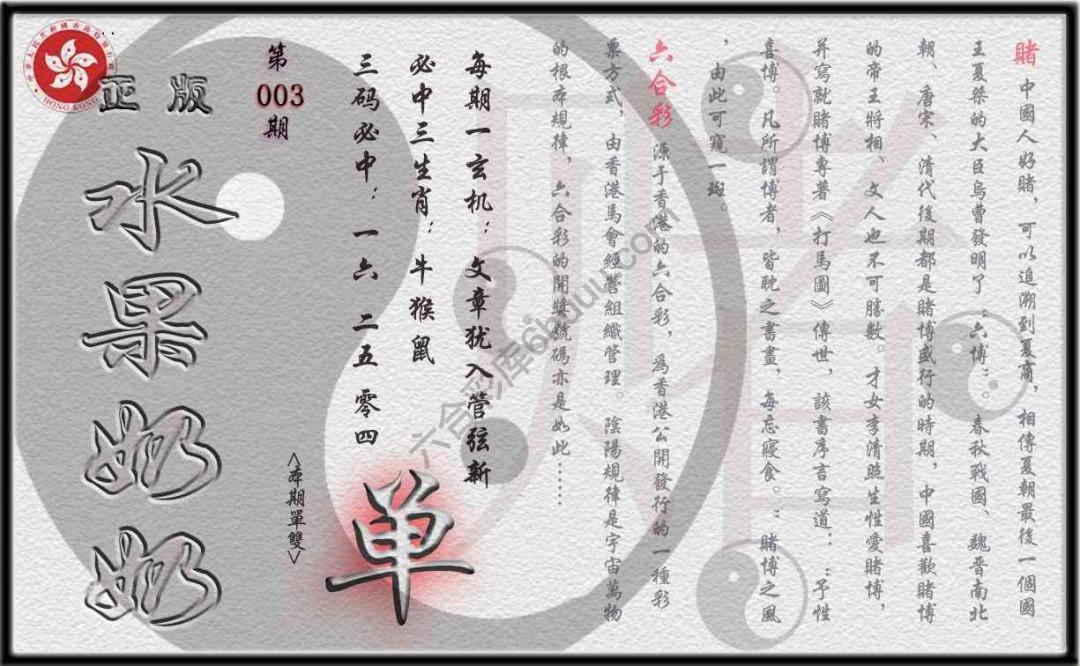 賭 中國人好賭，可以追溯到夏商，相傳夏朝最後一個國
王夏桀的大臣烏曹發明了：六博：。春秋戰國、魏晉南北
朝、唐宋、清代後期都是賭博盛行的時期，中國喜歡賭博
的帝王將相、文人也不可勝數。才女李清照生性愛賭博，
并寫就賭博專著《打馬圖》傳世，該書序言寫道：：予性
喜博。凡所謂博者，皆耽之晝晝，每忘寢食。：賭博之風
，由此可窺一斑。
六合彩 源于香港的六合彩，爲香港公開發行的一種彩
票方式，由香港馬會經營組織管理。陰陽規律是宇宙萬物
的根本規律，六合彩的開獎號碼亦是如此……
每期一玄机：文章犹入管弦新
必中三生肖：牛猴鼠
三码必中：一六 二五 零四
单
<本期單雙>
第
003
期
正版
水果奶奶
HONG KONG
六合彩库66uuu.com